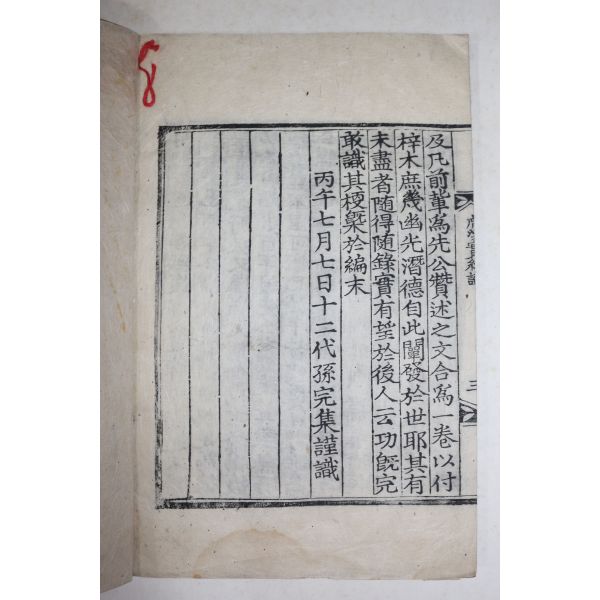 及凡前輩爲先公贊述之文合爲一卷以付
梓木庶幾幽光潛德自此闡發於世耶其有
未盡者隨得隨錄實有望於後人云功旣完
敢識其梗槩於編末
丙午七月七日十二代孫完集謹識